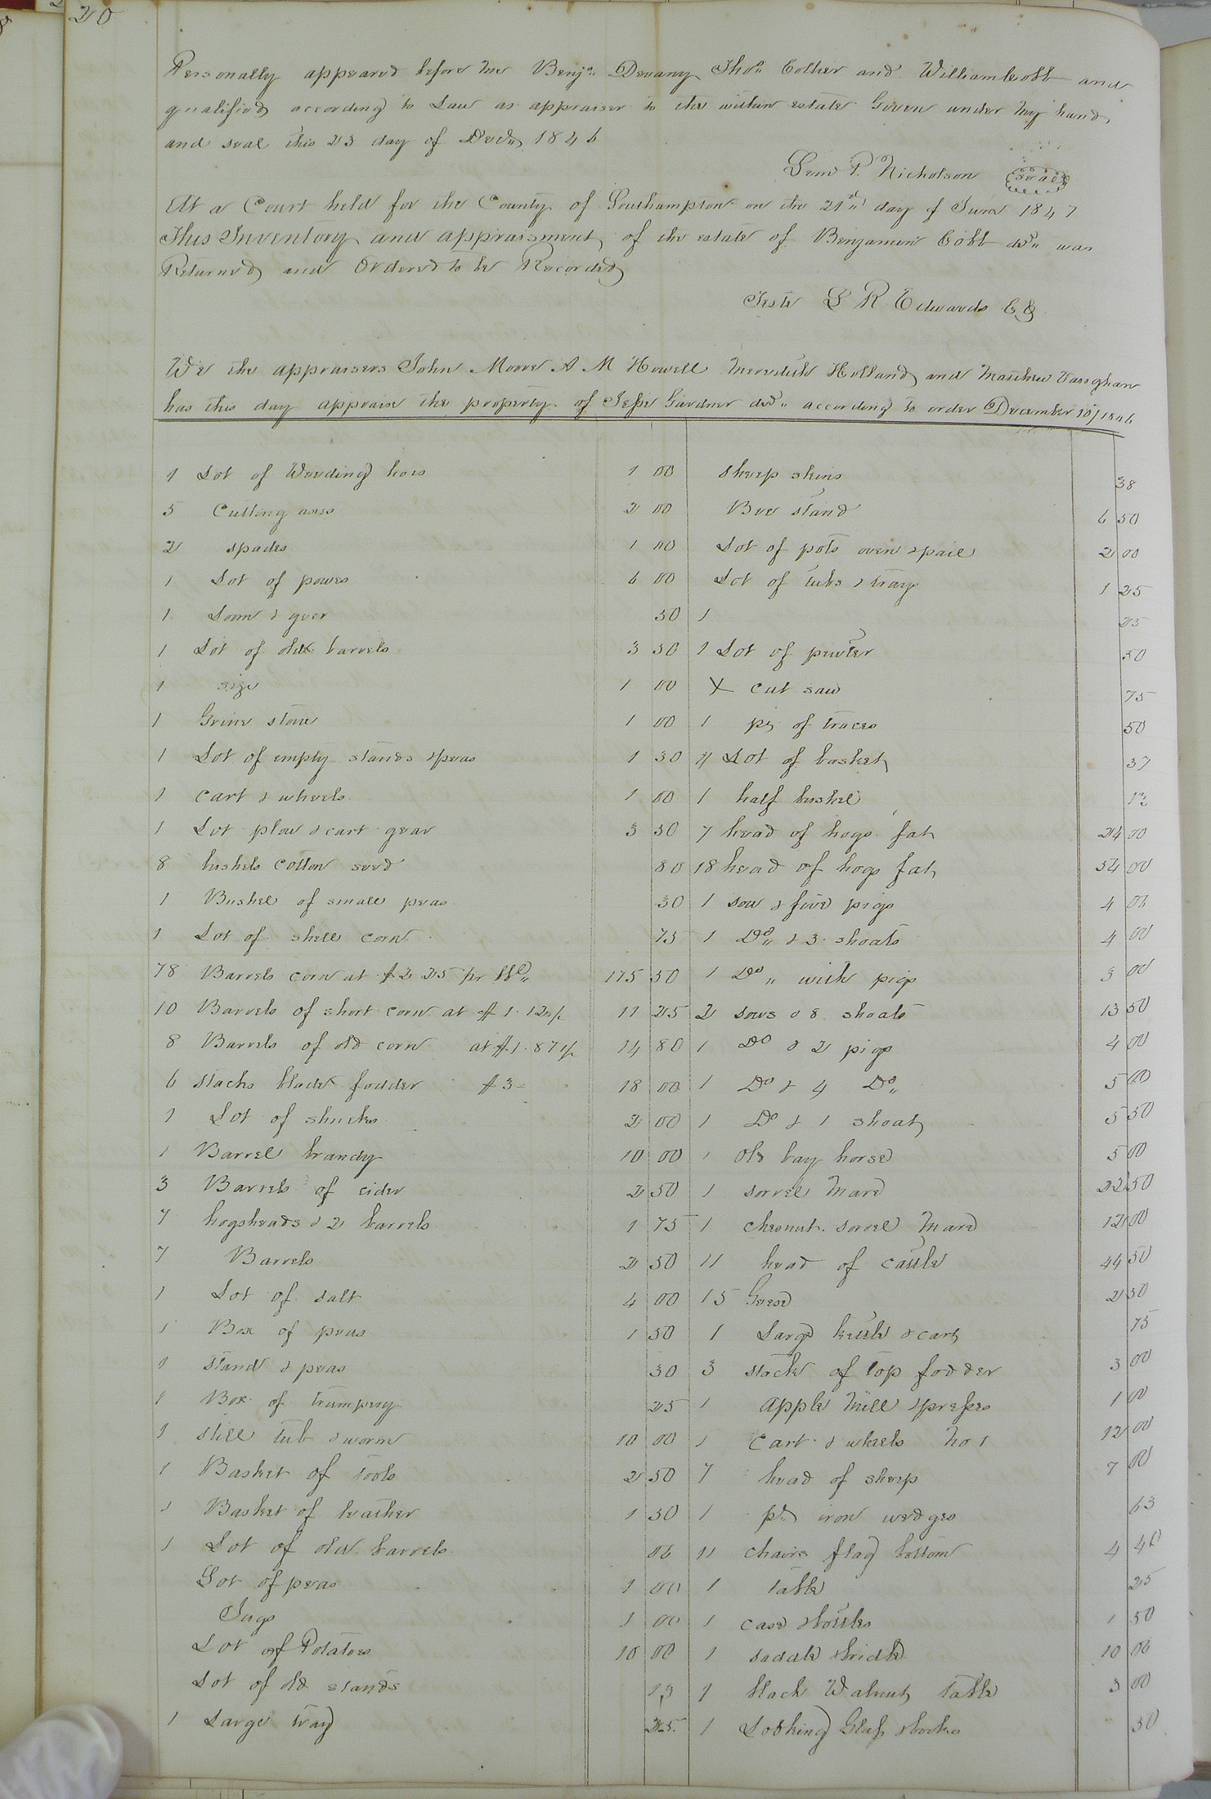 20
Personally appeared before me Benja. Devany Thos. Collier and William Cobb and
qualified according to Law as appraiser to the within estate Given under my hand
and seal this 23 day of Decr. 1846
P. Nicholson seal
At a Court held for the County of Southampton on the 21st day of June 1847
This Inventory and appraisment of the estate of Benjamin Cobb decd. was
Returned and Ordered to be Recorded
Teste L R Edwards
We the appraisers John Moore A M Howell Meredith Holland and Matthew Vaughan
has this day appraise the property of Jesse Gardner decd. according to order December 1846
1 Lot of Weeding hoes 1 00
5 Cutting axes 2 00
2 spades 1 00
1 Lot of 6 00
1 Loom & gear 50
1 Lot of old barrels 3 50
1 1 00
1 Grine stone 1 00
1 Lot of empty stands & peas 1 50
1 cart & wheels 1 00
1 Lot plow & cart gear 3 50
8 bushels cotton seed 80
1 Bushel of small peas 50
1 Lot of shell corn 75
78 Barrels corn at $2 25 pr 175 50
10 Barrels of short corn at $1.12½ 11 25
8 Barrels of old corn at $1.87½ 14 80
6 stacks blade fodder $3 18 00
1 Lot of shucks 2 00
1 Barrel brandy 10 00
3 Barrels of cider 2 50
7 hogsheads & 2 barrels 1 75
7 Barrels 2 50
1 Lot of salt 4 00
1 Box of peas 1 50
1 stand & peas 30
1 Box of trumpery 25
1 still tub & worm 10 00
1 Basket of tools 2 50
1 Basket of leather 1 50
1 Lot of old barrels 06
Lot of peas 1 00
Jugs 1 00
Lot of Potatoes 10 00
Lot of old stands
1 Large tray 25
sheep skins 38
Bee stand 6 50
Lot of pots oven & pail 2 00
Lot of tubs & tray 1 25
1 25
1 Lot of pewter 50
X cut saw 75
1 pr of traces 50
1 Lot of basket 37
1 half bushel 12
7 head of hogs fat 24 00
18 head of hogs fat 54 00
1 sow & five pigs 4 00
1 Do. & 3 shoats 4 00
1 Do. with pigs 3 00
2 sows & 8 shoats 13 50
1 Do & 2 pigs 4 00
1 Do & 4 Do. 5 00
1 Do & 1 shoat 5 50
1 old bay horse 5 00
1 sorrel mare 22 50
1 chesnut sorrel mare 12 00
11 head of cattle 44 50
15 Geese 2 50
1 Large kettle & cart 75
3 stack of top fodder 3 00
1 apple mill & press 1 00
1 cart & wheels no 1 12 00
7 head of sheep 7 00
1 pr iron wedges 63
11 chairs flag bottom 4 40
1 table 25
1 case & bottles 1 50
1 saddle & bridle 10 00
1 black Walnut table 3 00
1 Looking Glass & books 50